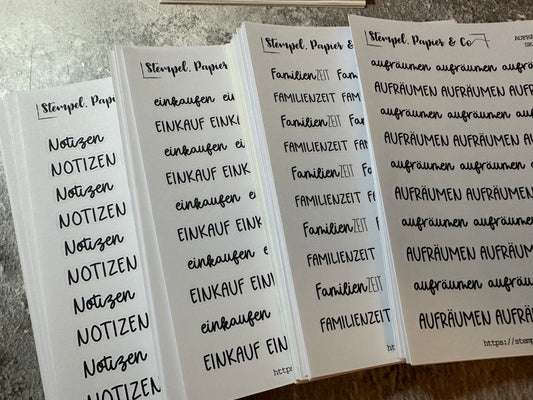 Stempel, Papier
Notizen
NOTIZEN
Notizen
NOTIZEN
Notizen
NOTIZEN
Notizen
NOTIZEN
Notizen
NOTIZEN
Stempel, Papier
einkaufen
EINKAUF EINK
einkaufen
EINKAUF EINK
einkaufen
EINKAUF EIN
einkaufen
EINKAUF EIN
einkaufen
EINKAUF EIN
http
Stempel, Papier &
FamilienZEIT
FAMILIENZEIT FAM
FamilienZEIT
FAMILIENZEIT
FamilienZEIT
FAMILIENZEIT
FamilienZEIT
FAMILIENZEIT
FamilienZEIT
FAMILIENZEIT
Stempel, Papier & Co
aufräumen aufräumen
AUFRÄUMEN AUFRÄUMEN
aufräumen aufräumen
AUFRÄUMEN AUFRÄUMEN
aufräumen aufräumen
AUFRÄUMEN AUFRÄUMEN
aufräumen aufräumen
AUFRÄUMEN AUFRÄUMEN
aufräumen aufräumen
AUFRÄUMEN AUFRÄ
https://stem